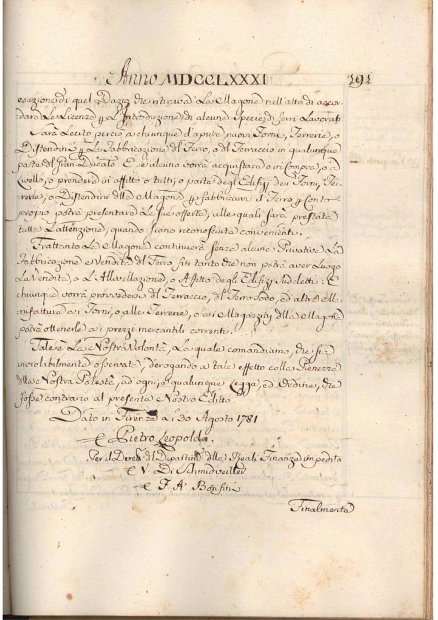 Anno MDCCLXXXI 191
esazione di quel Dazio che ritirava la Magona nell'atto di accor-
dare le Licenze p l'Introduzione di alcune Specie di ferri Lavorati
Sarà Lecito perciò a chiunque d'aprire nuovi Forni, Ferriere, o
Distendini p la Fabbricazione del Ferro, e del Ferraccio in qualunque
parte del Gran Ducato. E se alcuno vorrà acquistare o in Compra, o a
Livello, o prendere in affitto o tutti, o parte degl'Edifizj dei Forni, Fer-
riere, o Distendini della Magona p fabbricarvi il Ferro p Conto
proprio, potrà presentare le sue offerte, alle quali sarà prestata
tutta l'attenzione, quando siano riconosciute convenienti.
Frattanto la Magona continuerà senza alcuna Privativa la
Fabbricazione e Vendita del Ferro fin tanto che non potrà aver Luogo
la Vendita, o l'Allivellazione, o Affitto degli Edifizj suddetti: E
chiunque vorrà provvedersi del Ferraccio, del Ferro Sodo, ed altre Ma-
nifatture ai Forni, o alle Ferriere, o ai Magazzini della Magona
potrà ottenerle ai prezzi mercantili correnti.
Tale è la Nostra Volontà, la quale comandiamo, che si
inviolabilmente osservata, derogando a tale effetto colla Pienezza
della Nostra Potestà, ad ogni, e qualunque Legge, ed Ordine, che
fosse contrario al presente Nostro Editto.
Dato in Firenze li 30 Agosto 1781
Pietro Leopoldo
Per il Dirett. del Dipartim. delle Reali Finanze impedito
V. Di Schmidveiller
F. A. Bonfini
Finalmente